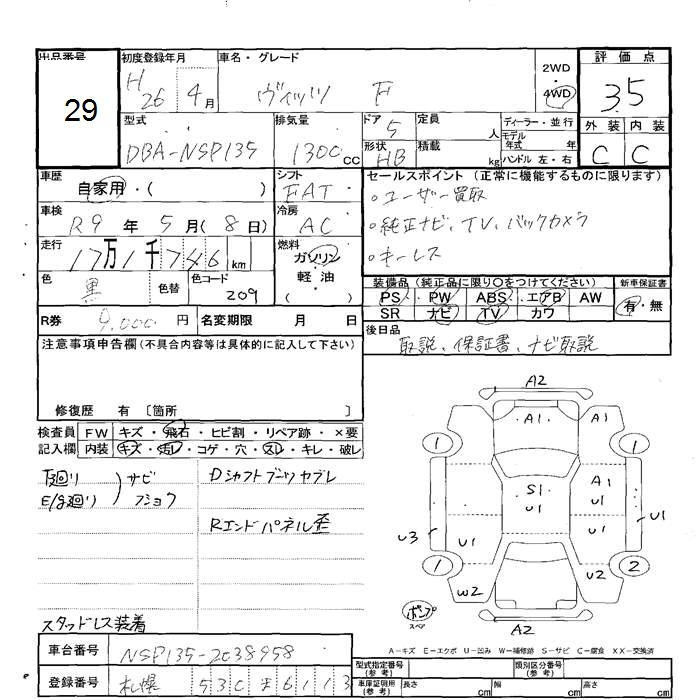 出品番号 初度登録年月 車名・グレード 2WD 評価点
29 H26 4月 ヴィッツ F 4WD 35
型式 排気量 ドア 5 定員 人 ディーラー・並行 外装 内装
DBA-NSP135 1300cc 形状 HB 積載 kg モデル年式 年 C C
ハンドル 左・右
車歴 自家用・( ) シフト FAT セールスポイント (正常に機能するものに限ります)
車検 R9年 5月(8日) 冷房 AC 。ユーザー買取
。純正ナビ、TV、バックカメラ
走行 17万1千746km 燃料 ガソリン・軽油 。キーレス
色 黒 色替 色コード 209 装備品 (純正品に限り○をつけてください) 新車保証書
PS PW ABS エアB AW 有・無
SR ナビ TV カワ
R券 9,000円 名変期限 月 日 後日品
取説、保証書、ナビ取説
注意事項申告欄(不具合内容等は具体的に記入して下さい)
修復歴 有〔箇所 〕
検査員 FW キズ・飛石・ヒビ割・リペア跡・×要
記入欄 内装 キズ・汚レ・コゲ・穴・スレ・キレ・破レ
下廻り サビ Dシャフトブーツヤブレ
E/g廻り フショク
Rエンドパネル歪
スタッドレス装着
A2
A1 A1
1 1
A1
S1
U1 U1
U3 U1 U1
1 2
W2 U2
ポンプ
スペア
A2
A-キズ E-エクボ U-凹み W-補修跡 S-サビ C-腐食 XX-交換済
車台番号 NSP135-2038958
型式指定番号(参考) 類別区分番号(参考)
登録番号 札幌 530 そ 6113
車庫証明記載(参考) 長さ cm 幅 cm 高さ cm